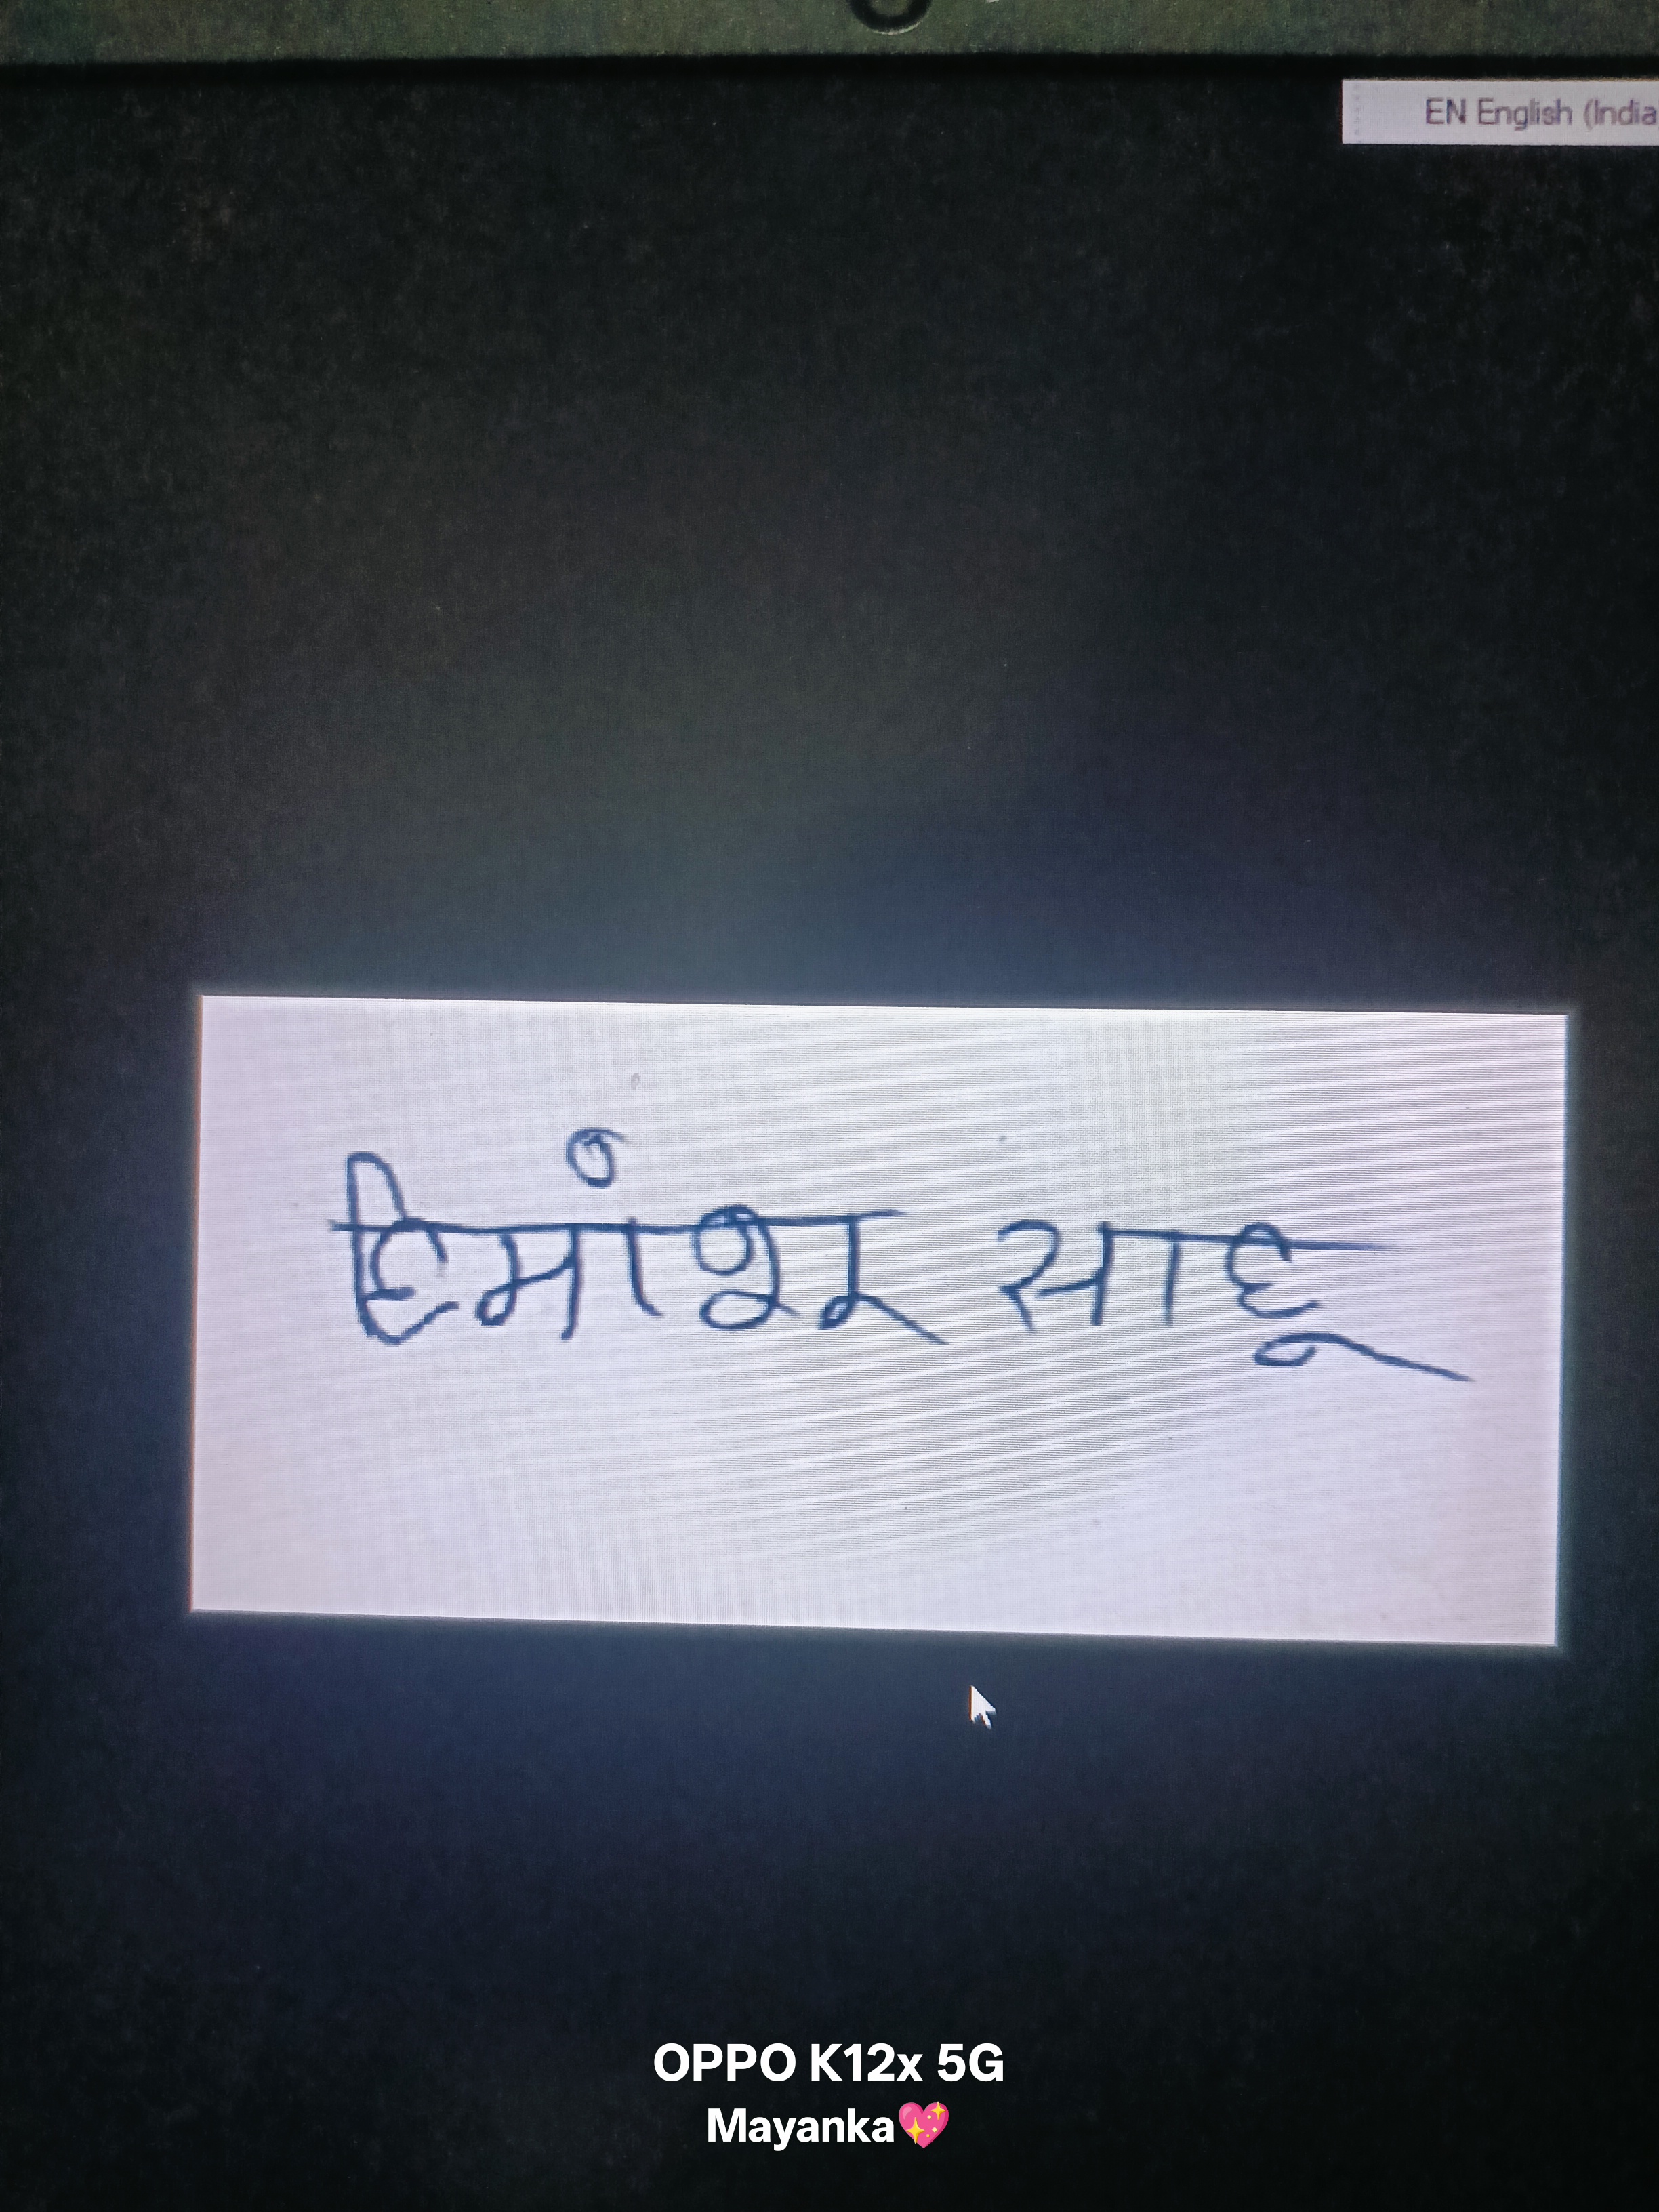 EN English (India
हिमांशू साहू
OPPO K12x 5G
Mayanka💖